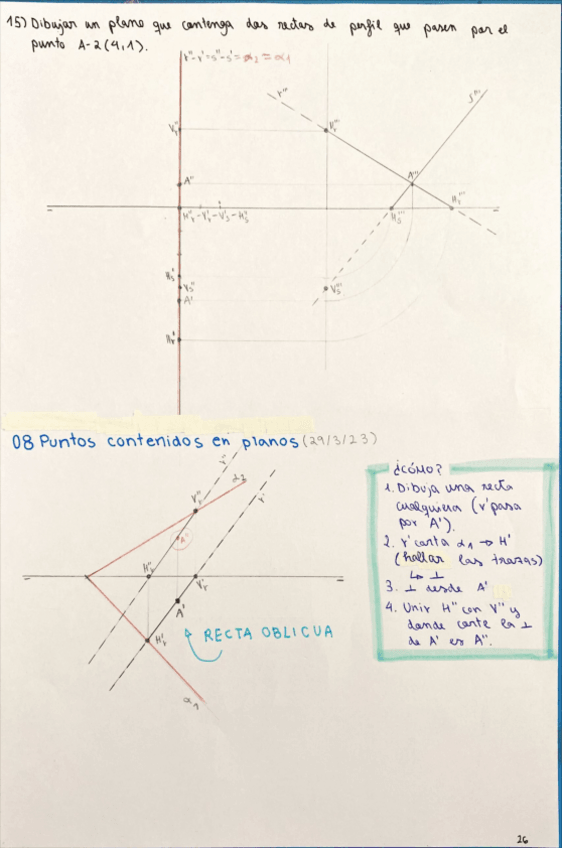 15) Dibujar un plano que contenga dos rectas de perfil que pasen por el
punto A-2(4,1).
r''-r'=s''-s'=α2=α1
r'''
s'''
Vr''
Vr'''
A''
A'''
Hr''-Vr'-Vs'-Hs''
Hs'''
Hr'''
Hs'
Vs''
A'
Vs'''
Hr'
08 Puntos contenidos en planos (29/3/23)
r''
α2
r'
Vr''
A''
Hr''
Vr'
A'
Hr'
RECTA OBLICUA
α1
¿CÓMO?
1. Dibuja una recta
cualquiera (r' pasa
por A').
2. r' corta α1 → H'
(hallar las trazas)
↳ ⊥
3. ⊥ desde A'
4. Unir H'' con V'' y
donde corte la ⊥
de A' es A''.
26